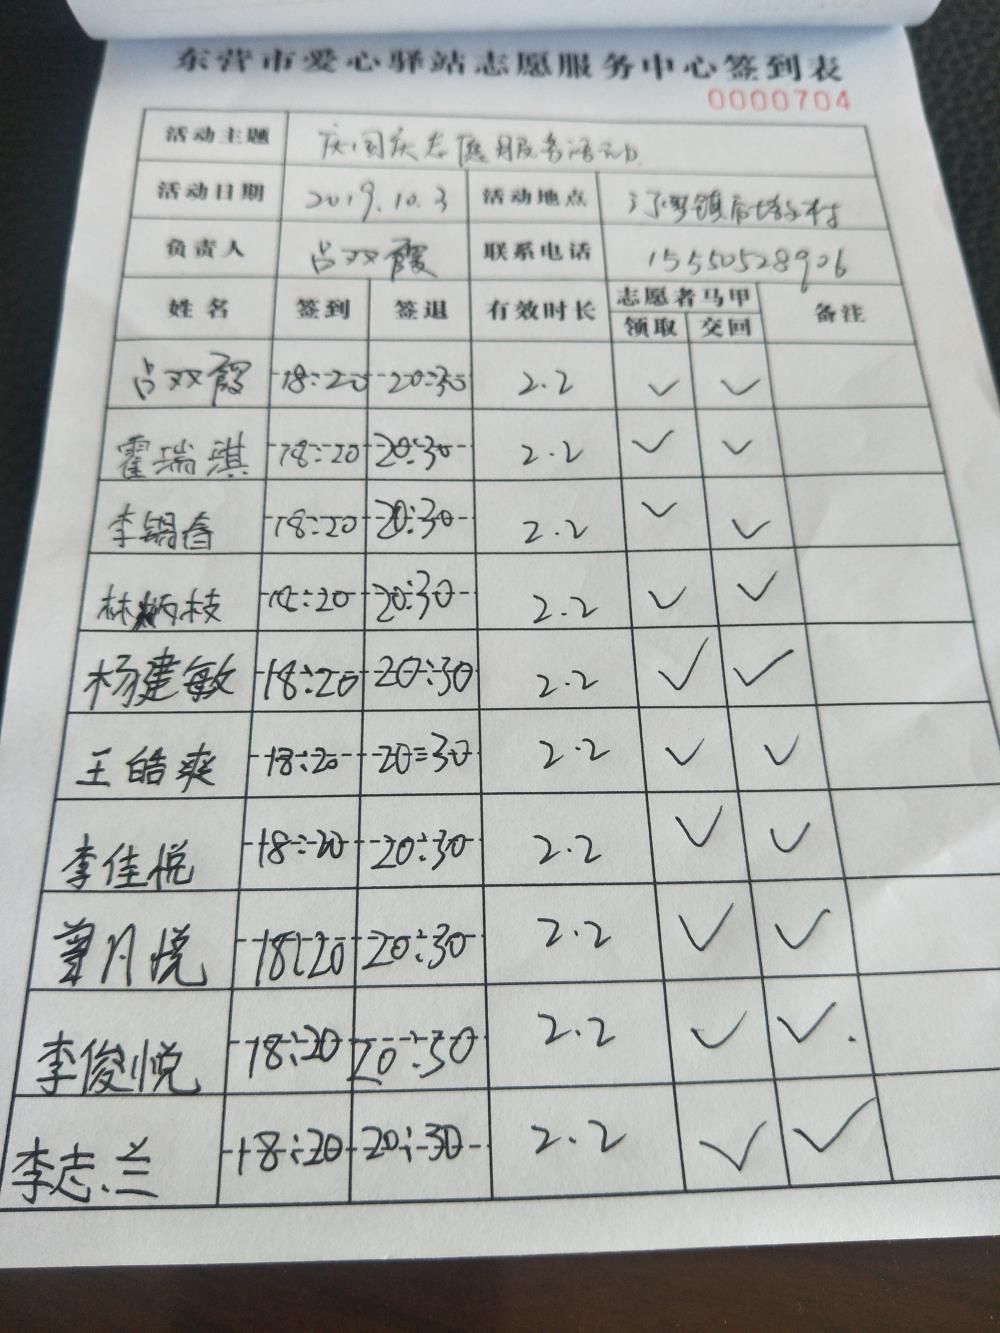 东营市爱心驿站志愿服务中心签到表
0000704
活动主题 庆国庆志愿服务活动
活动日期 2019.10.3 活动地点 河口镇后墩村
负责人 吕双霞 联系电话 15550528906
姓名 签到 签退 有效时长 志愿者马甲 备注
领取 交回
吕双霞 18:20 20:30 2.2 ✓ ✓
霍瑞淇 18:20 20:30 2.2 ✓ ✓
李锡睿 18:20 20:30 2.2 ✓ ✓
林炳枝 18:20 20:30 2.2 ✓ ✓
杨建敏 18:20 20:30 2.2 ✓ ✓
王皓爽 18:20 20:30 2.2 ✓ ✓
李佳悦 18:20 20:30 2.2 ✓ ✓
月悦 18:20 20:30 2.2 ✓ ✓
李俊悦 18:20 20:30 2.2 ✓ ✓
李志兰 18:20 20:30 2.2 ✓ ✓